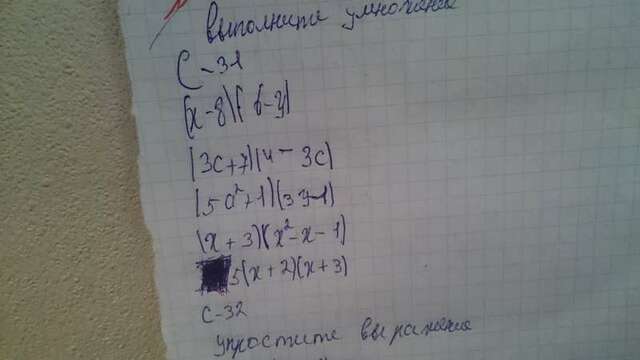 выполните умножение
С-31
(x-8)(6-y)
(3c+7)(4-3c)
(5a²+1)(3y-1)
(x+3)(x²-x-1)
5(x+2)(x+3)
С-32
упростите выражение